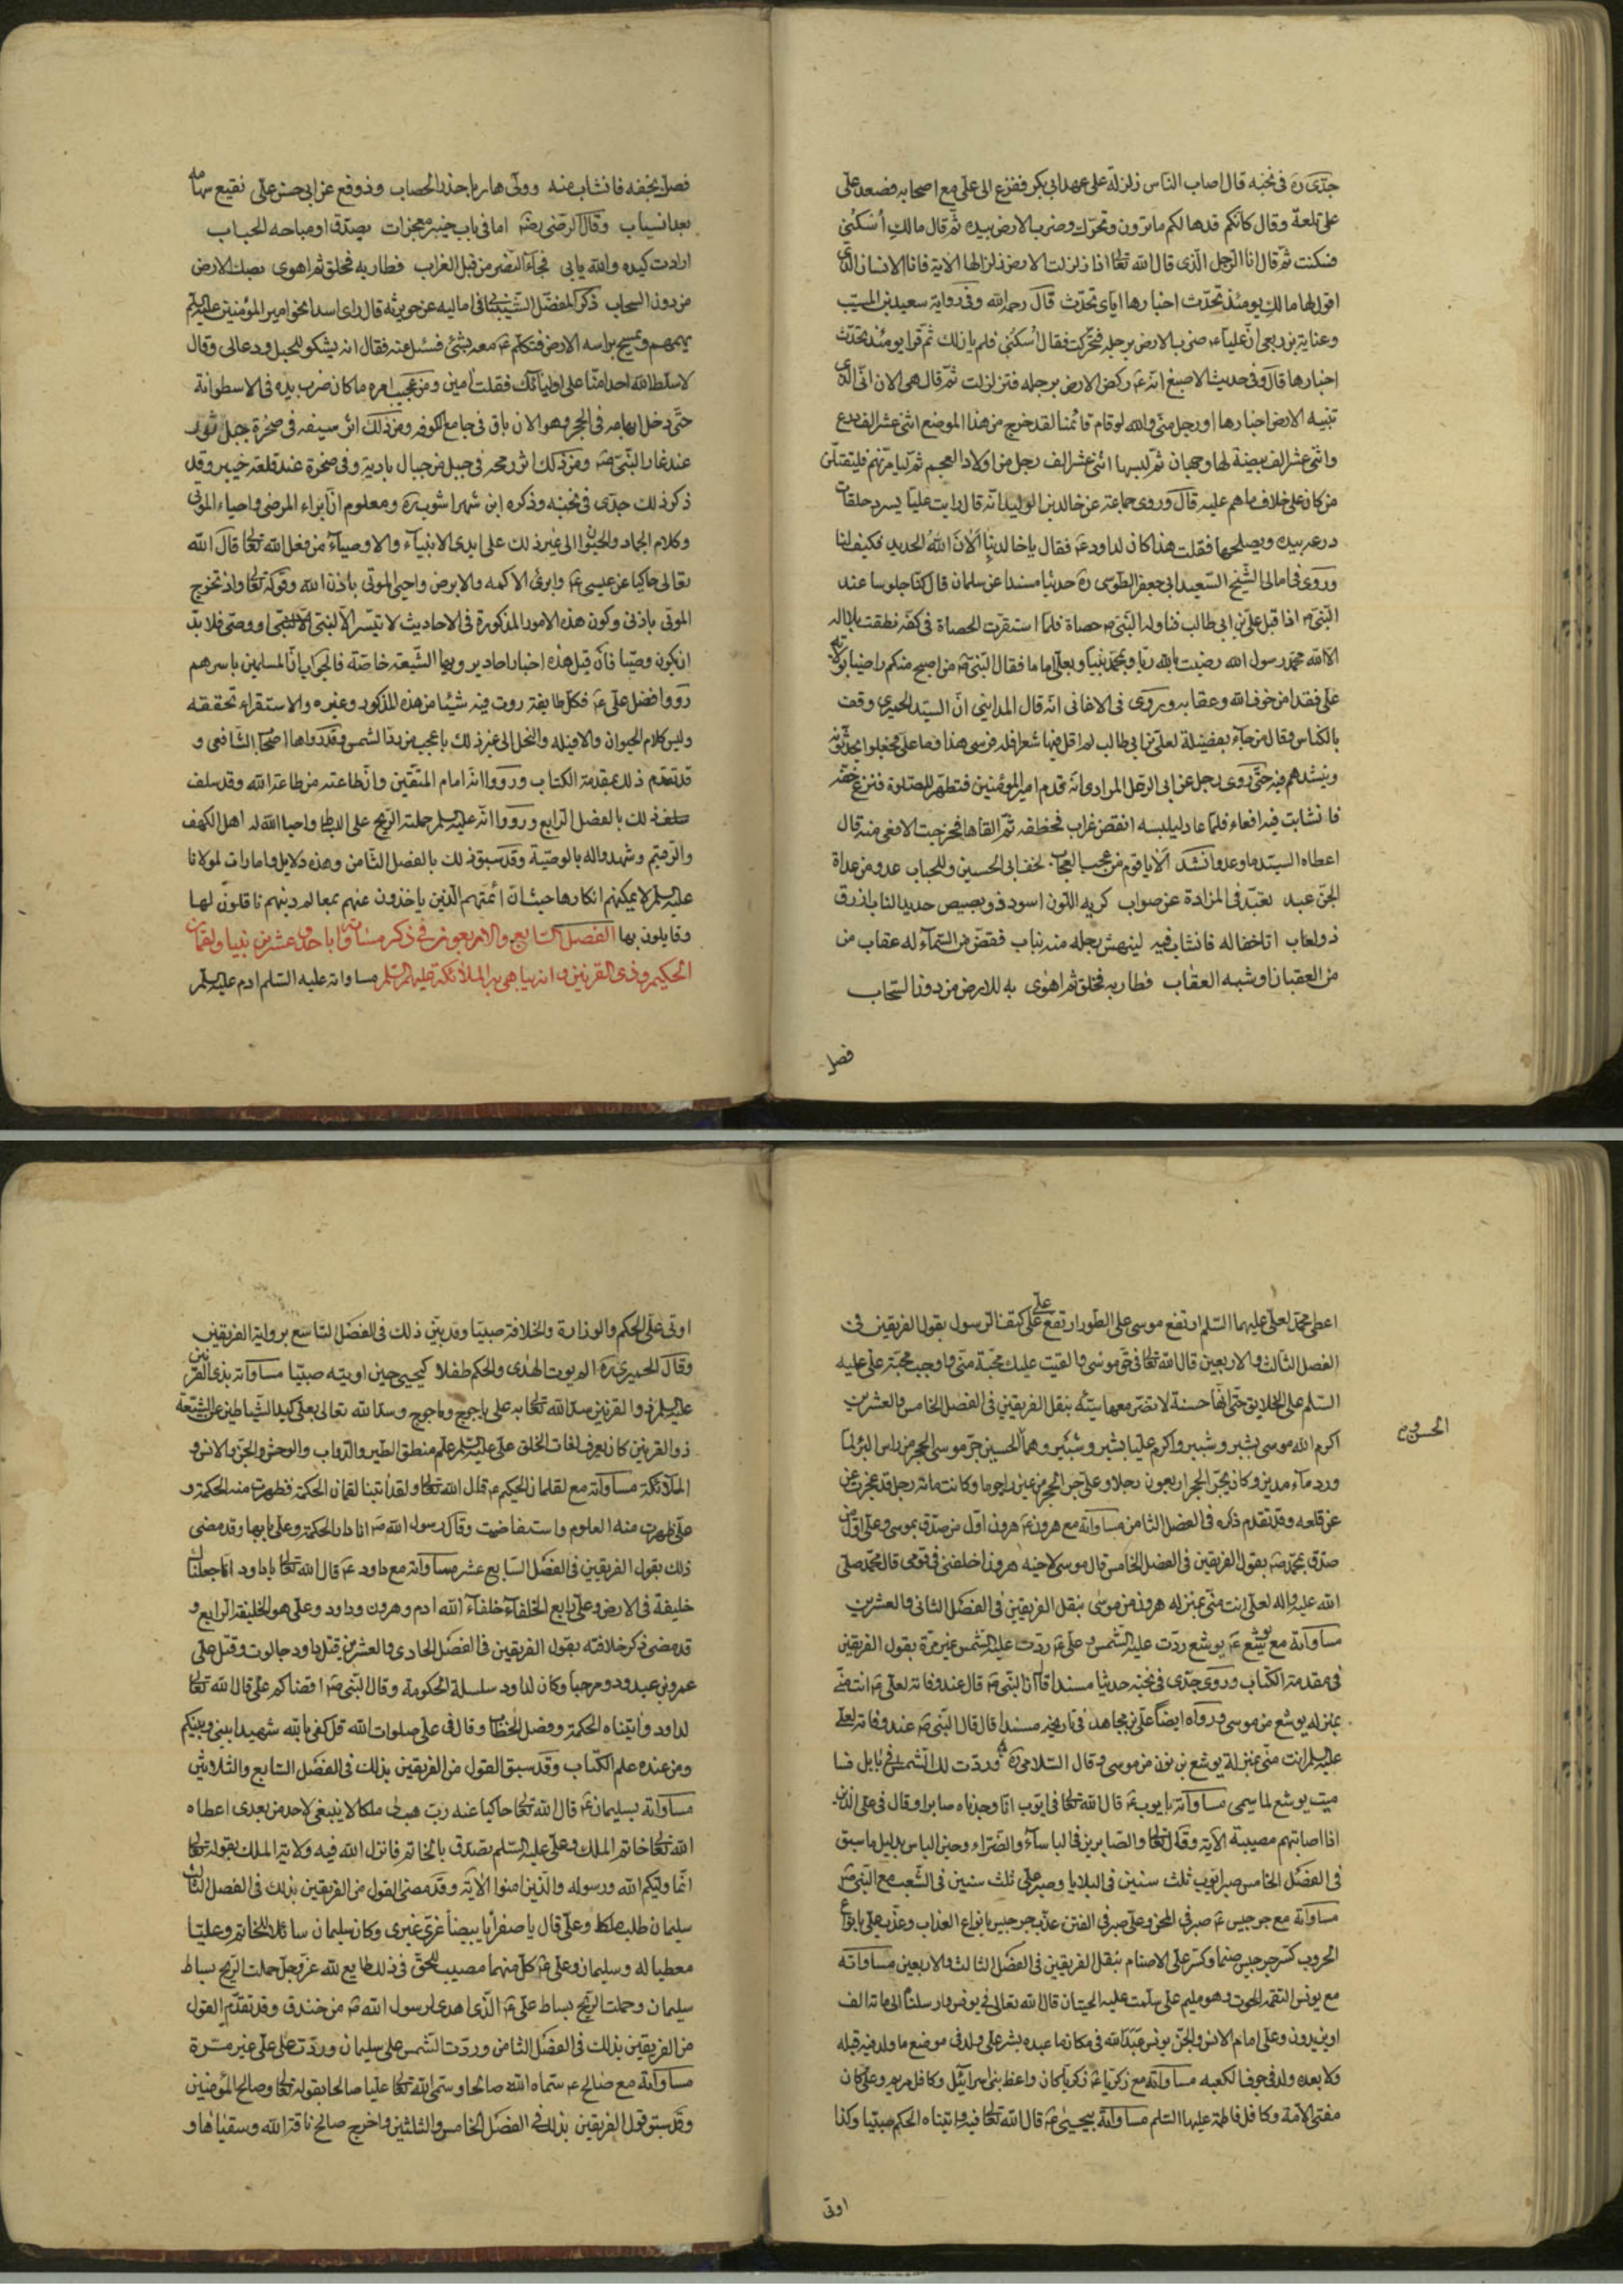 جدّى ره فى نخبه قال اصاب الناس زلزلة على عهد ابى بكر ففزع الى على مع اصحابه فصعد على
على تلعة وقال كانكم قد هالكم ما ترون وتحرّك وضرب الارض بيده ثم قال مالكِ اُسكُنى
فسكنت ثم قال انا الرّجل الّذى قال الله تعالى اذا زلزلت الارض زلزالها الآية فانا الانسان الذى
اقول لها مالكِ يومئذ تحدّث اخبارها اياى تحدّث قال رحمه الله وفى رواية سعيد بن المسيّب
وعباية بن ربعى انّ عليا ع ضرب الارض برجله فتحرّكت فقال اُسكُنى فلم يان لك ثم قرا يومئذ تحدّث
اخبارها قال وفى حديث الاصبغ انه ع ركض الارض برجله فتزلزلت ثم قال هى الان انّى الّذى
تنبيه الارض اخبارها او رجل منّى والله لو قام قائمنا لقد خرج من هذا الموضع اثنى عشر الف درع
واثنى عشر الف بيضة لها وجهان ثم لبسها اثنى عشر الف رجل من اولاد العجم ثم ليامرّنهم فليقتلن
من كان على خلاف ما هم عليه قال وروى جماعة عن خالد بن الوليد انه قال رايت عليا يسرد حلقات
درعه بيده ويصلحها فقلت هذا كان لداود ع فقال يا خالد بنا اَلاَنَ اللهُ الحديد فكيف لنا
وروى فى امالى الشّيخ السّعيد ابى جعفر الطوسى ره حديثا مسندا عن سلمان قال كنّا جلوسا عند
النّبى ص اذا قبل علىّ بن ابى طالب فناوله النّبى ص حصاة فلمّا استقرت الحصاة فى كفّه نطقت بلا اله
الا الله محمد رسول الله رضيت بالله ربّا وبمحمّد نبيّا وبعلى اماما فقال النّبى ص من اصبح منكم راضيا بولاية
على فقد امن خوف الله وعقابه ويروى فى الاغانى انه قال المداينى انّ السيّد الحميرى وقف
بالكناس وقال من جاء بفضيلة لعلىّ بن ابى طالب لم اقل فيها شعرا فله فرسى هذا وما على فجعلوا يحدّثونه
وينشدهم فيه حتّى روى رجل عن ابى الرعل المرادى انه قدم امير المؤمنين فتطهّر للصّلوة فنزع خفّه
فانشابت فيه افعاء فلمّا عاد ليلبسه انقضّ غراب فخطفه ثم القاها فخرجت الافعى منه قال
اعطاه السيّد ما وعد وانشد الايا قوم من عجب العجاب لخف ابى الحسين وللحباب عدو من عداة
الجن عبد بعيد فى المزادة عن صواب كريه اللون اسود ذو بصيص حديد الناب ازرق
ذو لعاب اتا خفا له فانشاب فيه لينهش رجله منه بناب فقضّ من السّماء له عقاب من
من العقبان او شبه العقاب فطار به فحلّق ثم اهوى به للارض من دون السّحاب
فصل
فصل بخفه فانشاب منه وولّى هاربا حذر الحصاب ودوفع عن ابى حسن علىّ نقيع سمامه
بعد انسياب وقال الرضى رضه اما فى باب خيبر معجزات يصدّق او مباحه الحباب
ارادت كيده والله يابى فجاء النصر من قبل الغراب فطار به فحلق ثم اهوى يصك الارض
من دون السحاب ذكر المفضّل الشيبانى فى اماليه عن جويرية قال راى اسدا نحو امير المؤمنين عليه السلم
يهمهم ويمسح براسه الارض فتكلّم ع معه بشئ فسئل عنه فقال انه يشكو الحبل ودعالى وقال
لاسلط الله احد امنّا على اوليائك فقلت اٰمين ومن عجيب امره ما كان ضرب بيده فى الاسطوانة
حتّى دخل ابهامه فى الحجر وهو الان باق فى جامع الكوفه ومن ذلك اثر سيفه فى صخرة جبل ثور
عند غار النّبى ص ومن ذلك اثر رمحه فى جبل من جبال بادية وفى صخرة عند قلعة خيبر وقد
ذكر ذلك جدّى فى نخبه وذكره ابن شهراشوب ره ومعلوم انّ ابراء المرضى واحياء الموتى
وكلام الجماد والحيوان الى غير ذلك على ايدى الانبياء والاوصياء من فعل الله تعالى قال الله
تعالى حاكيا عن عيسى ع وابرئ الاكمه والابرص واحيى الموتى باذن الله وقوله تعالى واذ تخرج
الموتى باذنى وكون هذه الامور المذكورة فى الاحاديث لا تيسّر الّا لنبى او وصىّ فلا بدّ
ان يكون وصيّا فان قيل هذه اخبار احاد يرويها الشّيعة خاصّة فالجواب انّ المسلمين باسرهم
رووا فضل على ع فكل طايفة روت فيه شيئا من هذه المذكور وغيره والاستقراء تحققه
وليس كلام الحيوان والافيله والنحل الى غير ذلك باعجب من ردّ الشمس وقد رواها اصحاب الشافعى و
قد تقدم ذلك بمقدمة الكتاب ورووا انه امام المتقين وانّ طاعته من طاعة الله وقد سلف
ذلك بالفصل الرابع ورووا انه عليه السلم حملته الريح على البساط واحيا الله له اهل الكهف
والرقيم وشهدوا له بالوصيّة وقد سبق ذلك بالفصل الثامن وهذه دلايل وامارات لمولانا
عليه السلم لا يمكنهم انكارها حيث انّ ائمتهم الّذين ياخذون عنهم معالم دينهم ناقلون لها
وقايلون بها الفصل السّابع والاربعون فى ذكر مساواته باحد وعشرين نبيا ولقمان
الحكيم وذى القرنين وانه يباهى به الملائكة عليهم السّلم مساواته عليه السّلم ادم عليه السلم
اعطى محمّد لعلى عليهما السّلم ارتفع موسى على الطور ارتفع علىّ على كتف الرسول بقول الفريقين فى
الفصل الثالث والاربعين قال الله تعالى فى حق موسى والقيت عليك محبّة منّى واوجب محبّة على عليه
السّلم على الخلايق حتّى انّها حسنة لا تضرّ معها سيّئه بنقل الفريقين فى الفصل الخامس والعشرين
اكرم الله موسى بشبر وشبير واكرم عليا بشبر وشبير وهما الحسين جرّ موسى الحجر من راس البئر لمّا
الحسن و م
ورد ماء مدين وكان يجرّ الحجر اربعون رجلا وعلى جر الحجر من عين راحوما وكانت مائة رجل قد عجزت عن
عن قلعه وقد تقدم ذكره فى الفصل الثامن مساواته مع هرون ع هرون اول من صدّق بموسى وعلى اول من
صدّق بمحمّد ص بقول الفريقين فى الفصل الخامس قال موسى لاخيه هرون اخلفنى فى قومى قال محمّد صلى
الله عليه واله لعلى انت منّى بمنزله هرون من موسى بنقل الفريقين فى الفصل الثانى والعشرين
مساواته مع يوشع ع يوشع ردّت عليه الشّمس وعلى ع ردّت عليه الشّمس غير مرّة بقول الفريقين
فى مقدمة الكتاب وروى جدّى فى نخبه حديثا مسندا قال انّ النّبى ص قال عند وفاته لعلى ع انت منّى
بمنزله يوشع من موسى ورواه ايضا علىّ بن مجاهد فى تاريخه مسندا قال قال النّبى ص عند وفاته لعلى
عليه السلم انت منّى بمنزلة يوشع بن نون من موسى وقال السّلامى ره وردّت لك الشّمس فى بابل فسا
ميت يوشع لما سمى مساواته بايوب ع قال الله تعالى فى ايّوب انّا وجدناه صابرا وقال فى على الّذين
اذا اصابتهم مصيبة الآية وقال تعالى والصّابرين فى الباساء والضّرّاء وحين الباس بدليل ما سبق
فى الفصل الخامس صبر ايّوب ثلث سنين فى البلايا وصبر على ثلث سنين فى الشّعب مع النّبى ص
مساواته مع جرجيس ع صبر فى المحن وعلى صبر فى الفتن عذّب جرجيس بانواع العذاب وعذّب على بانواع
الحروب كسر جرجيس صنما وكسر على الاصنام بنقل الفريقين فى الفصل الثالث والاربعين مساواته
مع يونس التقمه الحوت وهو مليم على سلّمت عليه الحيتان قال الله تعالى فى يونس وارسلناه الى مائة الف
او يزيدون وعلى امام الانس والجنّ يونس عَبَدَ الله فى مكان ما عبده بشر على ولد فى موضع ما ولد فيه قبله
ولا بعده ولد فى جوف الكعبه مساواته مع زكريا ع زكريا كان واعظ بنى اسرائيل وكافل مريم وعلى كان
مفتى الامة وكافل فاطمة عليها السّلم مساواته بيحيى ع قال الله تعالى فيه واتيناه الحكم صبيّا وكذا
اوتى
اوتى على الحكم والوزارة والخلافة صبيّا وقد بيّن ذلك فى الفصل التاسع برواية الفريقين
وقال الحميرى ره الم يوت الهدى والحكم طفلا كيحيى حين اوتيه صبيّا مساواته بذى القرنين
عليه السلم ذو القرنين سدّ الله تعالى به على ياجوج وماجوج وسدّ الله تعالى بعلى كيد الشّياطين عن الشيعة
ذو القرنين كان يعرف لغات الخلق على عليه السلم علم منطق الطير والدّواب والوحش والجنّ والانس و
الملائكة مساواته مع لقمان الحكيم ع قال الله تعالى ولقد اٰتينا لقمان الحكمة فظهرت منه الحكمة و
على ظهرت منه العلوم واستفاضت وقال رسول الله ص انا دار الحكمة وعلى بابها وقد مضى
ذلك بقول الفريقين فى الفصل السّابع عشر مساواته مع داود ع قال الله تعالى يا داود انّا جعلناك
خليفة فى الارض وعلى رابع الخلفاء خلفاء الله ادم وهرون وداود وعلى هو الخليفة الرابع و
قد مضى ذكر خلافته بقول الفريقين فى الفصل الحادى والعشرين قتل داود جالوت وقتل على
عمرو بن عبد ود ومرحبا وكان لداود سلسلة الحكومة وقال النّبى ص اقضاكم على قال الله تعالى
لداود واتيناه الحكمة وفصل الخطاب وقال فى على صلوات الله قل كفى بالله شهيدا بينى وبينكم
ومن عنده علم الكتاب وقد سبق القول من الفريقين بذلك فى الفصل السّابع والثلاثين
مساواته بسليمان ع قال الله تعالى حاكيا عنه ربّ هب لى ملكا لا ينبغى لاحد من بعدى اعطاه
الله تعالى خاتم الملك وعلى عليه السّلم تصدّق بالخاتم فانزل الله فيه ولاية الملك بقوله تعالى
انّما وليّكم الله ورسوله والّذين اٰمنوا الآية وقد مضى القول من الفريقين بذلك فى الفصل الثالث
سليمان طلب ملكا وعلى قال يا صفراء يا بيضاء غرّى غيرى وكان سليمان سائلا للخاتم وعليّا
معطيا له وسليمان وعلى ع كل منهما مصيب للحقّ فى ذلك طايع لله عزّ وجلّ حملت الرّيح بساط
سليمان وحملت الرّيح بساط على ع الّذى اهدى لرسول الله ص من خندق وقد تقدّم القول
من الفريقين بذلك فى الفصل الثامن وردّت الشّمس على سليمان وردّت على على غير مرّة
مساواته مع صالح ع سمّاه الله صالحا وسمّى الله تعالى عليّا صالحا بقوله تعالى وصالح المؤمنين
وقد سبق قول الفريقين بذلك فى الفصل الخامس والثلثين واخرج صالح ناقة الله وسقياها و